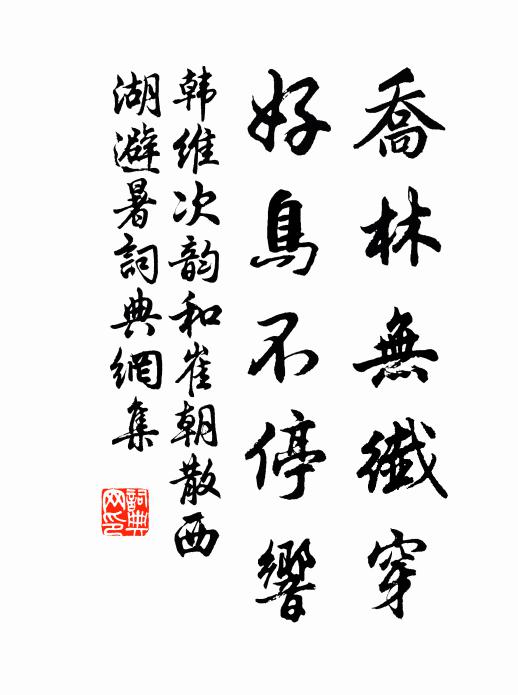 喬林無纖穿
好鳥不停響
韩維次韵和崔朝散西
湖避暑詞典網集
詞典网印